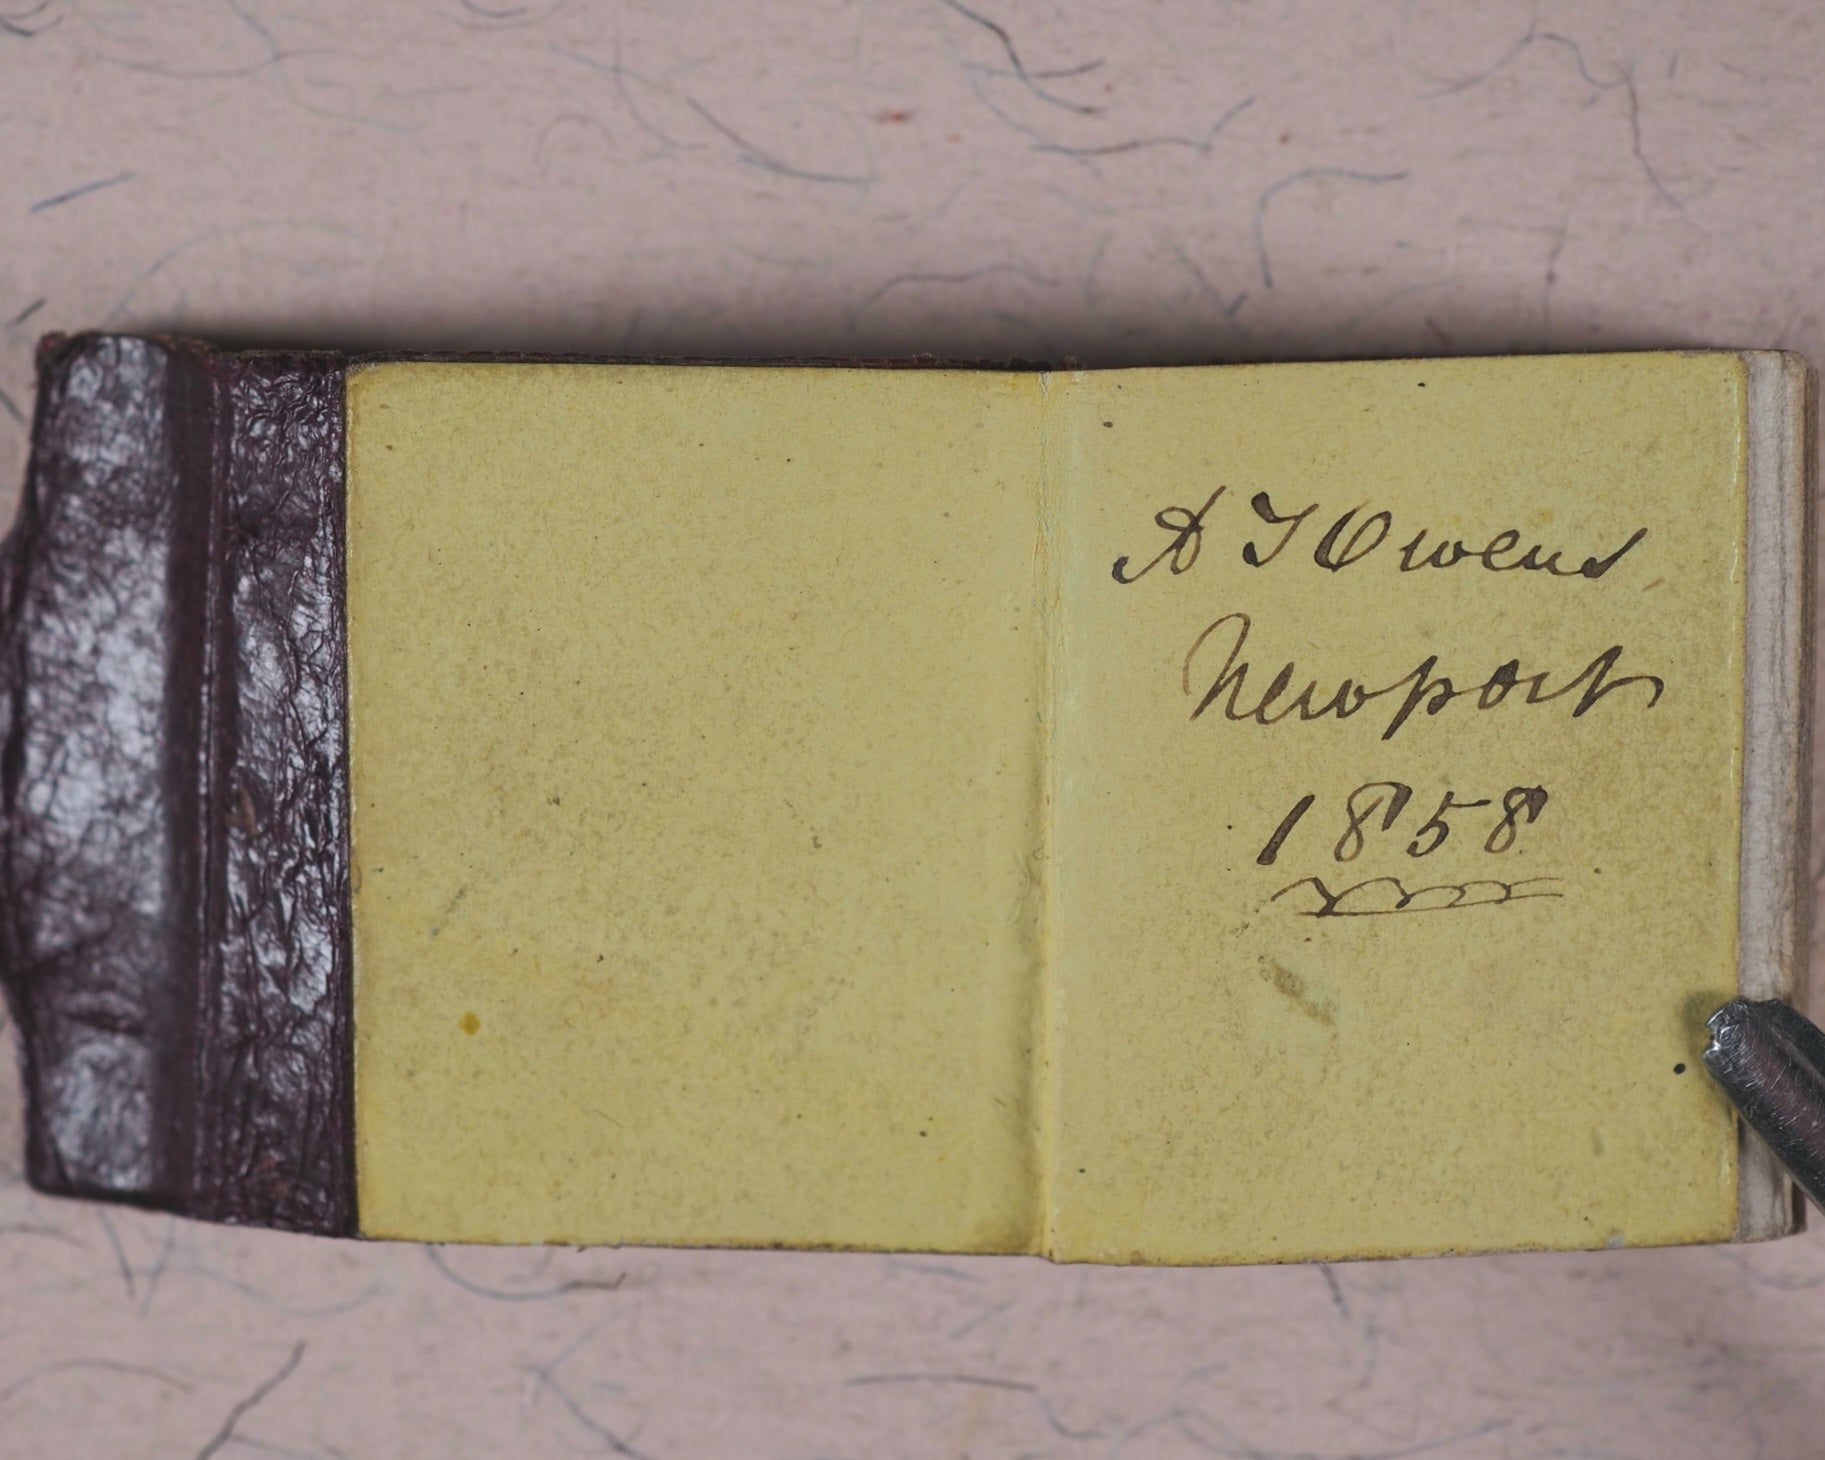 A J Owens
Newport
1858